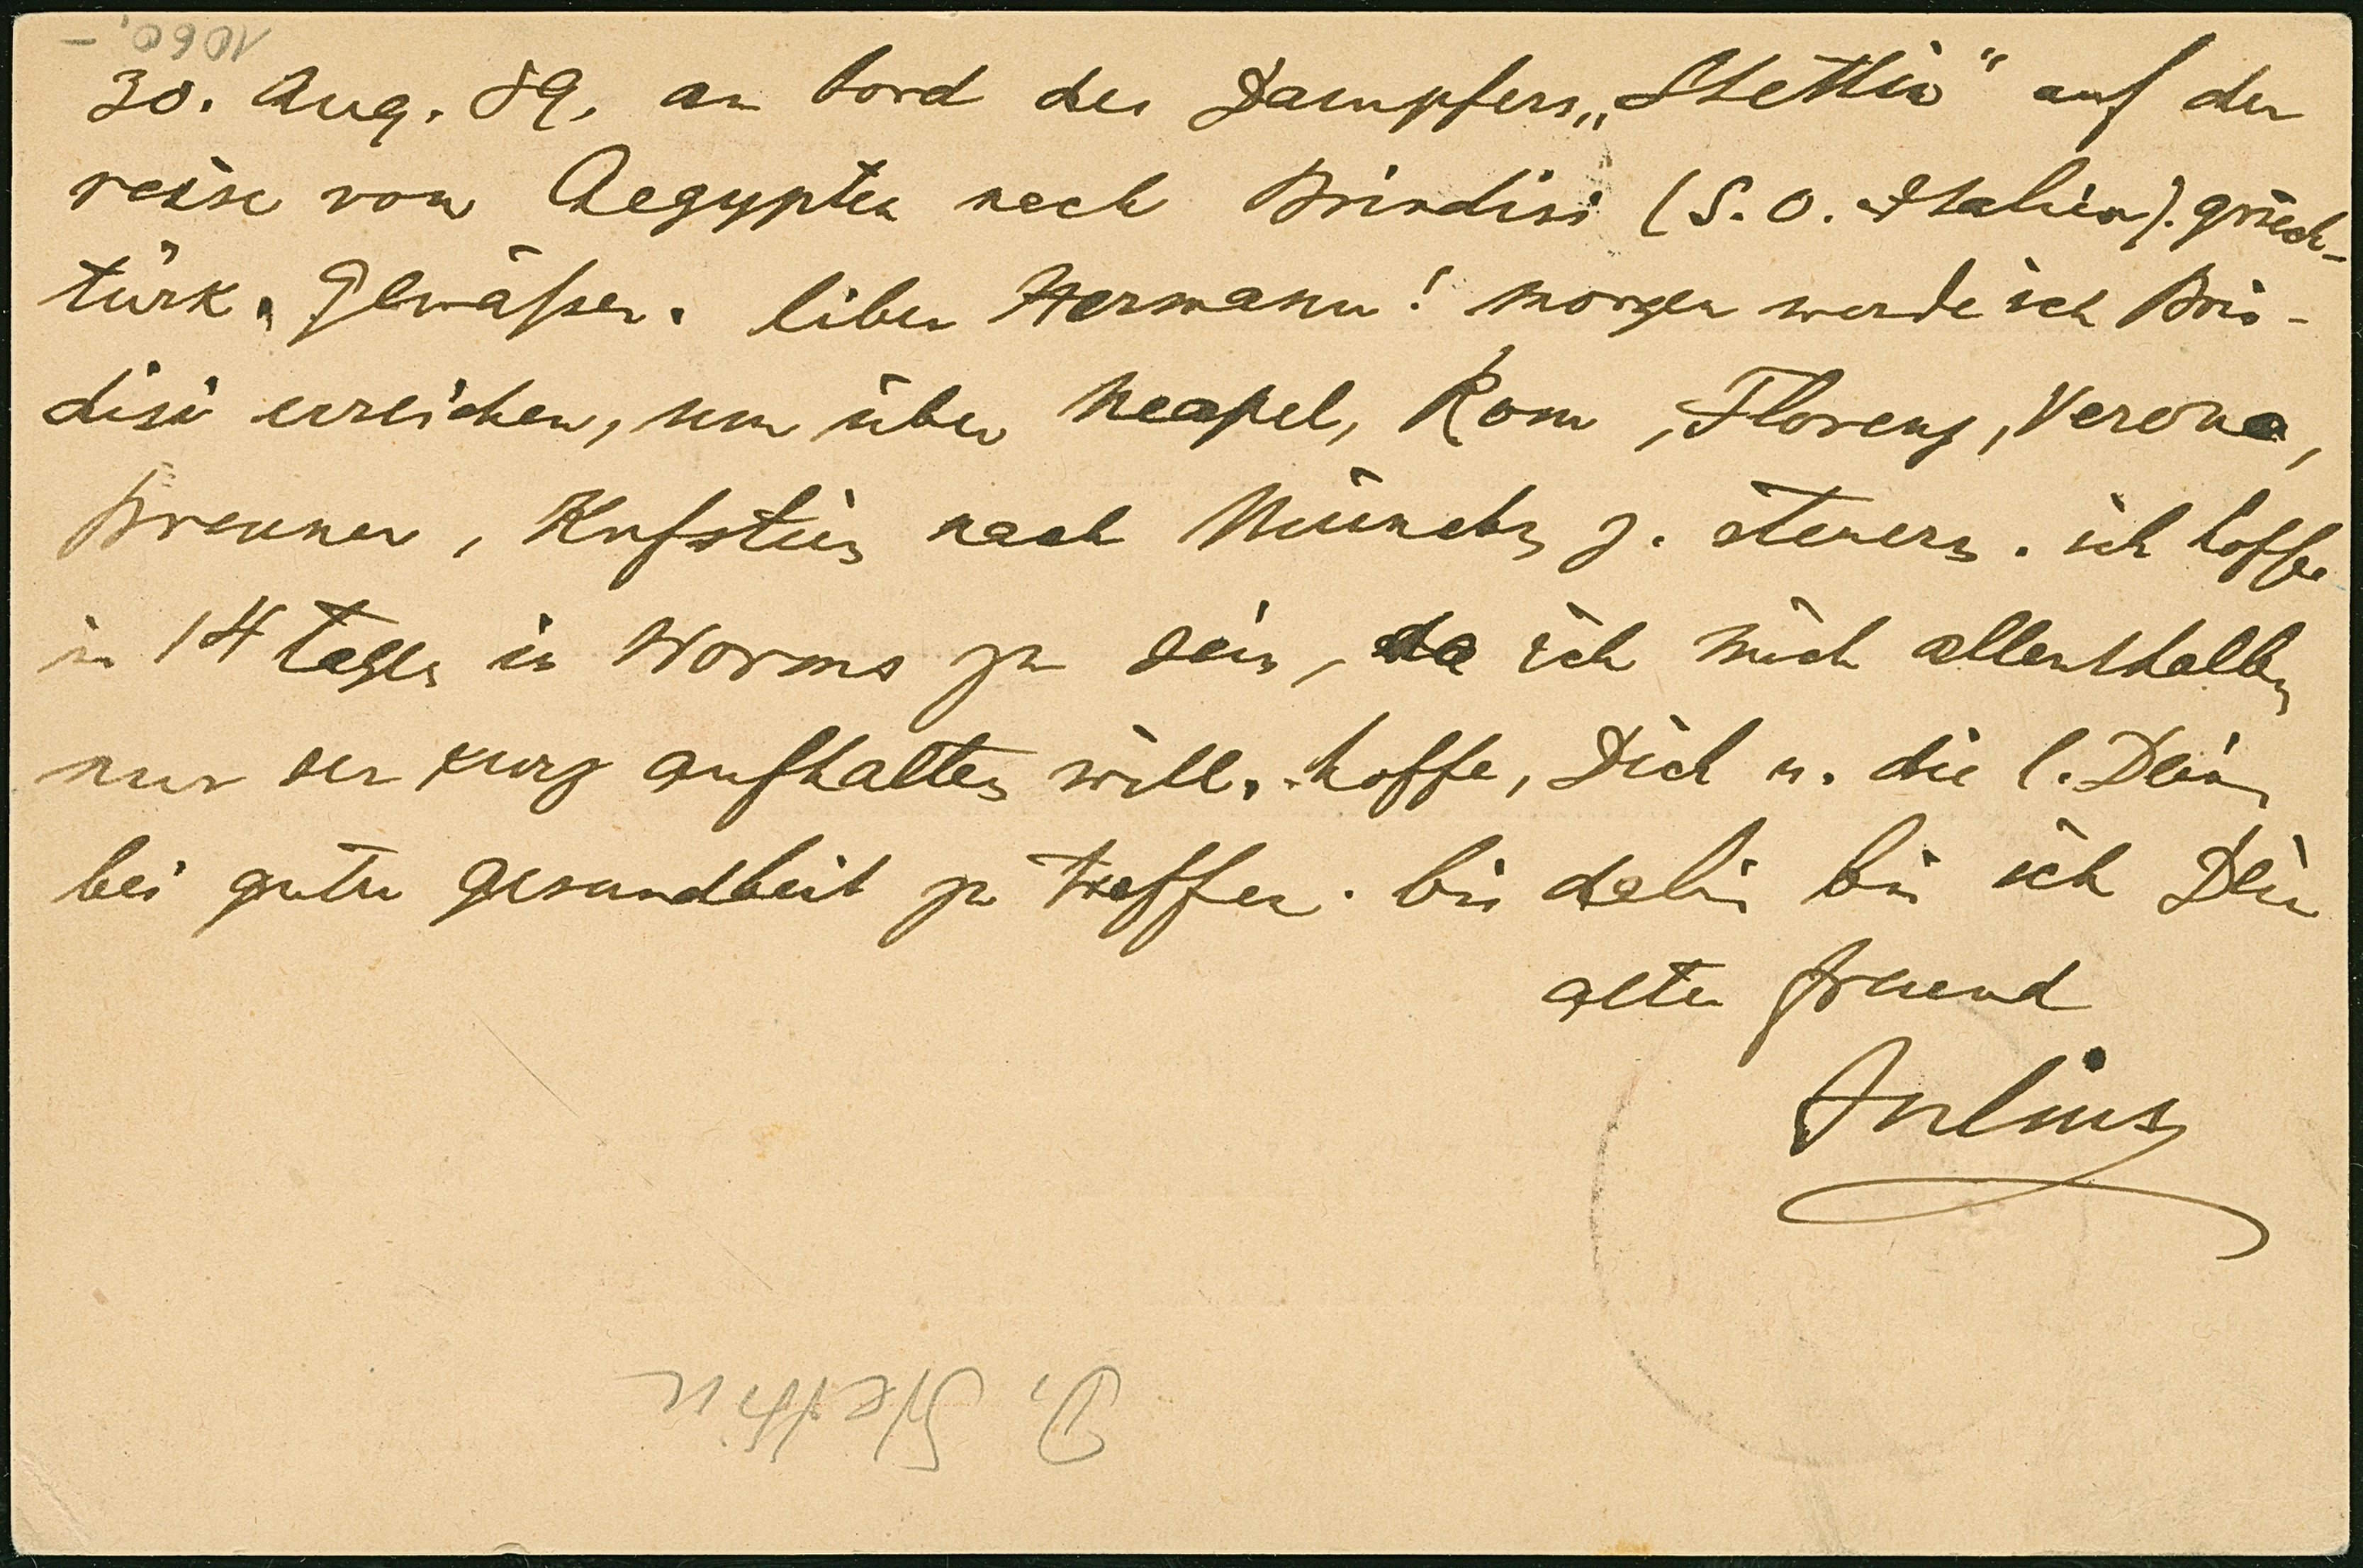 1060,-
30. Aug. 89, an bord des Dampfers „Stettin“ auf der
reise von Aegypten nach Brindisi (S. O. Italien). griech-
türk. Gewässer. liber Hermann! morgen werde ich Brin-
disi erreichen, um über Neapel, Rom, Florenz, Verona,
Brenner, Kufstein nach München z. steuern. ich hoffe
in 14 tagen in Worms zu sein, da ich mich allenthalben
nur ser kurz aufhalten will. hoffe, Dich u. die l. Deinen
bei guter gesundheit zu treffen. bis dahin bin ich Dein
alter freund
Julius
D. Stettin